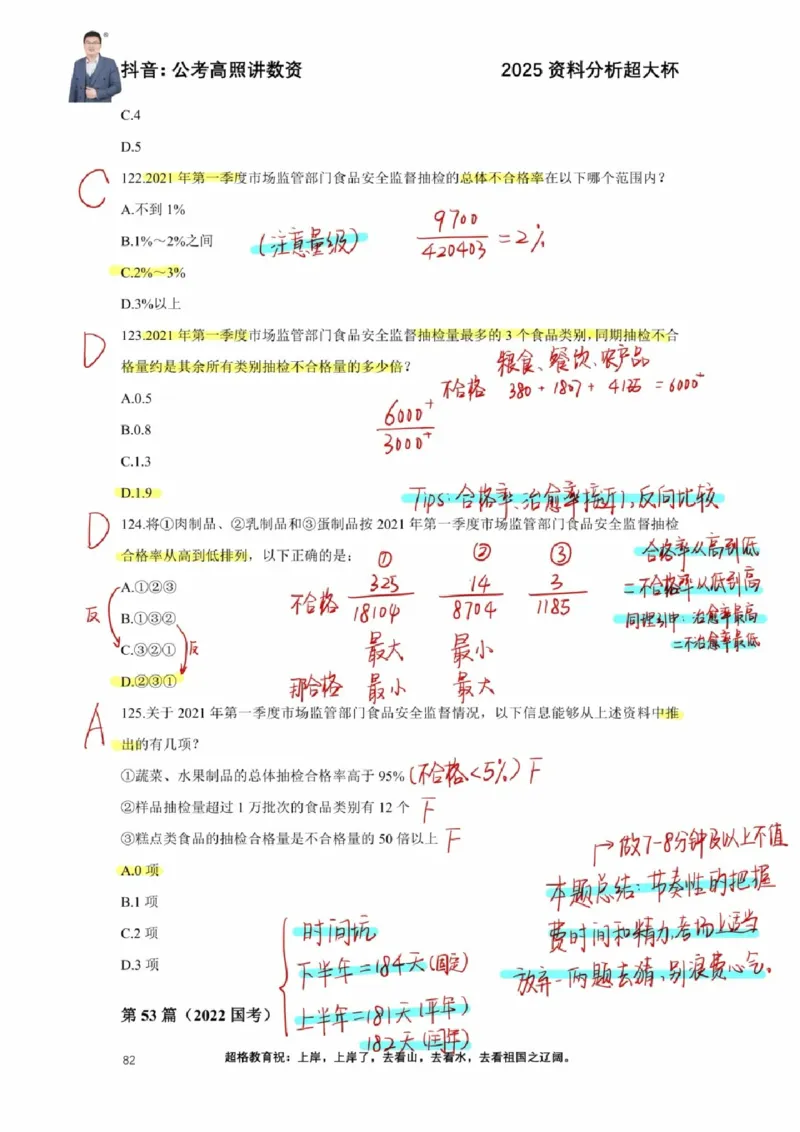 抖音：公考高照讲数资
2025 资料分析超大杯
C.4
D.5
C
122.2021 年第一季度市场监管部门食品安全监督抽检的总体不合格率在以下哪个范围内？
A.不到 1%
B.1%～2%之间
(注意量级)
9700
420403
=2%
C.2%～3%
D.3%以上
D
123.2021 年第一季度市场监管部门食品安全监督抽检量最多的 3 个食品类别，同期抽检不合
格量约是其余所有类别抽检不合格量的多少倍？
粮食、餐饮、农产品
不合格 380+1807+4135=6000+
A.0.5
6000+
3000+
B.0.8
C.1.3
D.1.9
Tips:合格率、治愈率接近1,反向比较
D
124.将①肉制品、②乳制品和③蛋制品按 2021 年第一季度市场监管部门食品安全监督抽检
合格率从高到低排列，以下正确的是：
① ② ③
合格率从高到低
=不合格率从低到高
同理引申:治愈率最高
=不治愈率最低
A.①②③
不合格
325 14 3
18104 8704 1185
反
B.①③②
C.③②①
反
最大 最小
D.②③①
那合格 最小 最大
A
125.关于 2021 年第一季度市场监管部门食品安全监督情况，以下信息能够从上述资料中推
出的有几项？
①蔬菜、水果制品的总体抽检合格率高于 95%
(不合格<5%)F
②样品抽检量超过 1 万批次的食品类别有 12 个
F
③糕点类食品的抽检合格量是不合格量的 50 倍以上
F
→做7-8分钟及以上不值
A.0 项
本题总结:节奏性的把握
B.1 项
费时间和精力,考场上适当
C.2 项
放弃一两题去猜,别浪费心气。
D.3 项
时间坑
下半年=184天(固定)
上半年=181天(平年)
182天(闰年)
第 53 篇（2022 国考）
82
超格教育祝：上岸，上岸了，去看山，去看水，去看祖国之辽阔。